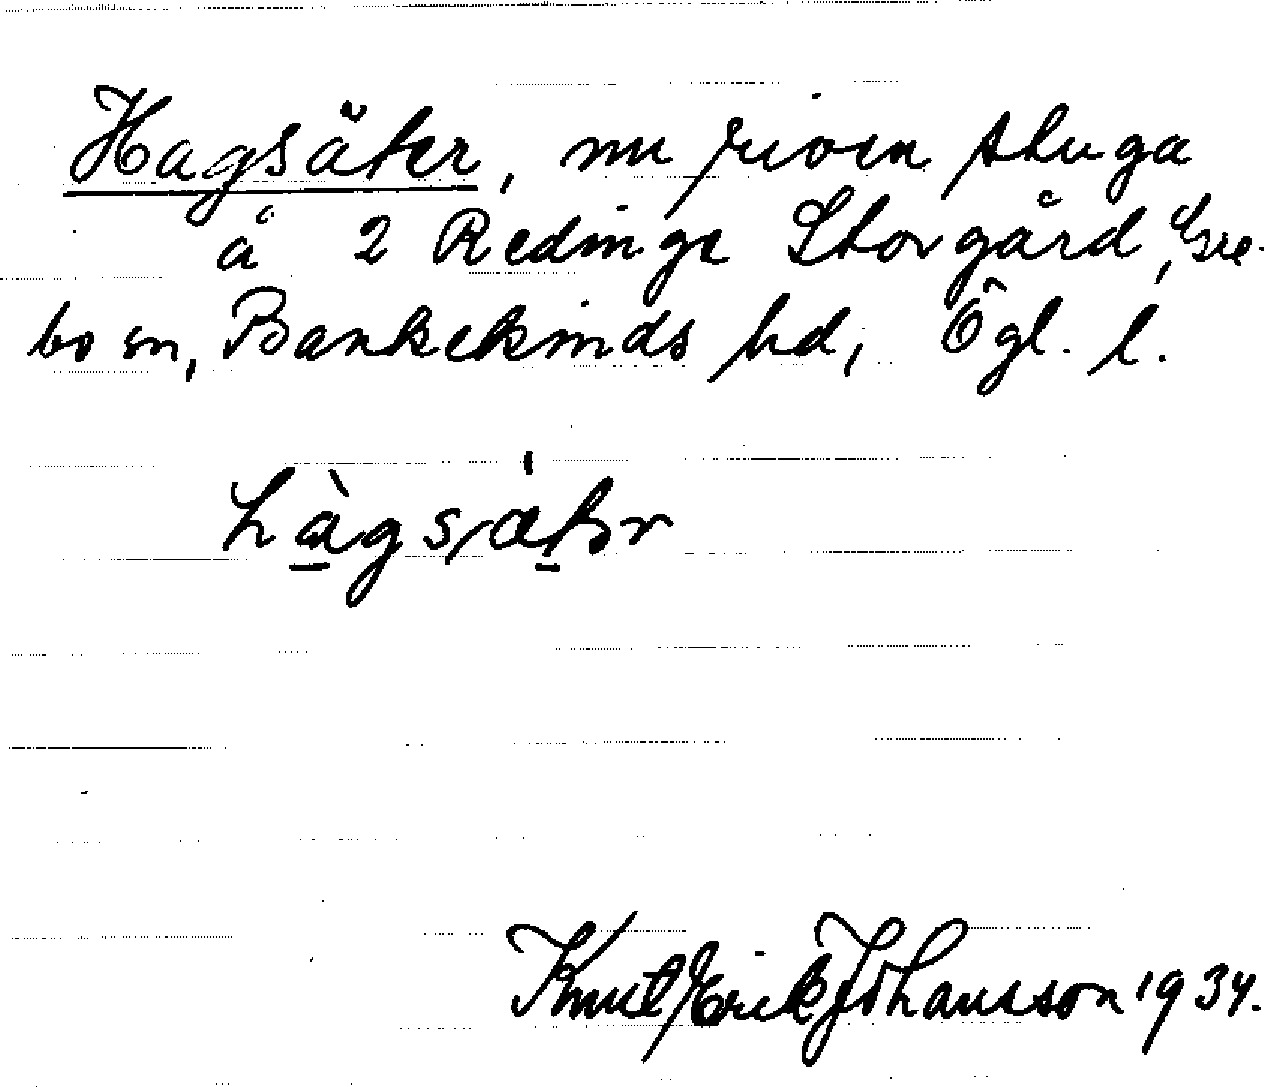 Hagsäter, nu riven stuga
å 2 Redinge Storgård, Gre-
bo sn, Bankekinds hd, Ögl. l.
hàgsˌätər
Knut Erik Johansson 1934.